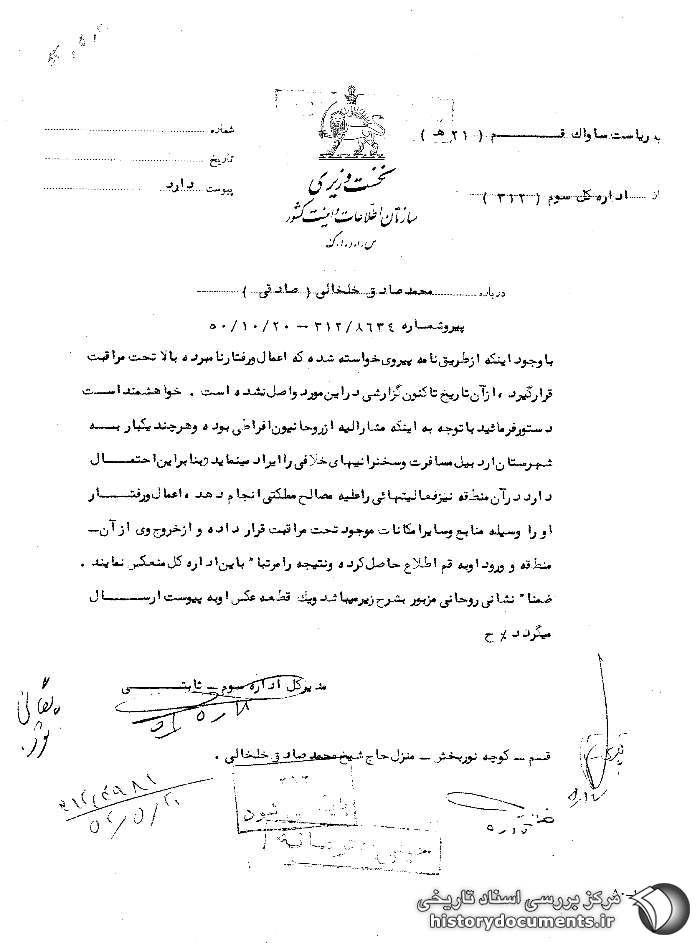 به ریاست ساواک قــــــم ( ۲۱ هـ )
از اداره کل سوم ( ۳۱۲ )
نخست وزیری
سازمان اطلاعات و امنیت کشور
س.ا.و.ا.ک
شماره
تاریخ
پیوست دارد
درباره محمد صادق خلخالی ( صادقی )
پیرو شماره ۳۱۲/۸۶۳۴ – ۵۰/۱۰/۲۰
با وجود اینکه از طریق نامه پیروی خواسته شده که اعمال و رفتار نامبرده بالا تحت مراقبت
قرار گیرد ، از آن تاریخ تاکنون گزارشی در این مورد واصل نشده است . خواهشمند است
دستور فرمائید با توجه به اینکه مشارالیه از روحانیون افراطی بوده و هر چند یکبار بــــه
شهرستان اردبیل مسافرت و سخنرانیهای خلافی را ایراد مینماید و بنا بر این احتمـــــال
دارد در آن منطقه نیز فعالیتهائی را علیه مصالح مملکتی انجام دهد ، اعمال و رفتـــــار
او را وسیله منابع و سایر امکانات موجود تحت مراقبت قرار داده و از خروج وی از آن –
منطقه و ورود او به قم اطلاع حاصل کرده و نتیجه را مرتباً باین اداره کل منعکس نمایند .
ضمناً نشانی روحانی مزبور بشرح زیر میباشد و یک قطعه عکس او به پیوست ارســـــال
میگردد ٪ ح
مدیر کل اداره سوم – ثابتــــی
۵۱/۵/۱۸
قسم – کوچه نوربخش – منزل حاج شیخ محمد صادق خلخالی .
۳۱۲
خیلی محرمانه
مرکز بررسی اسناد تاریخی
historydocuments.ir